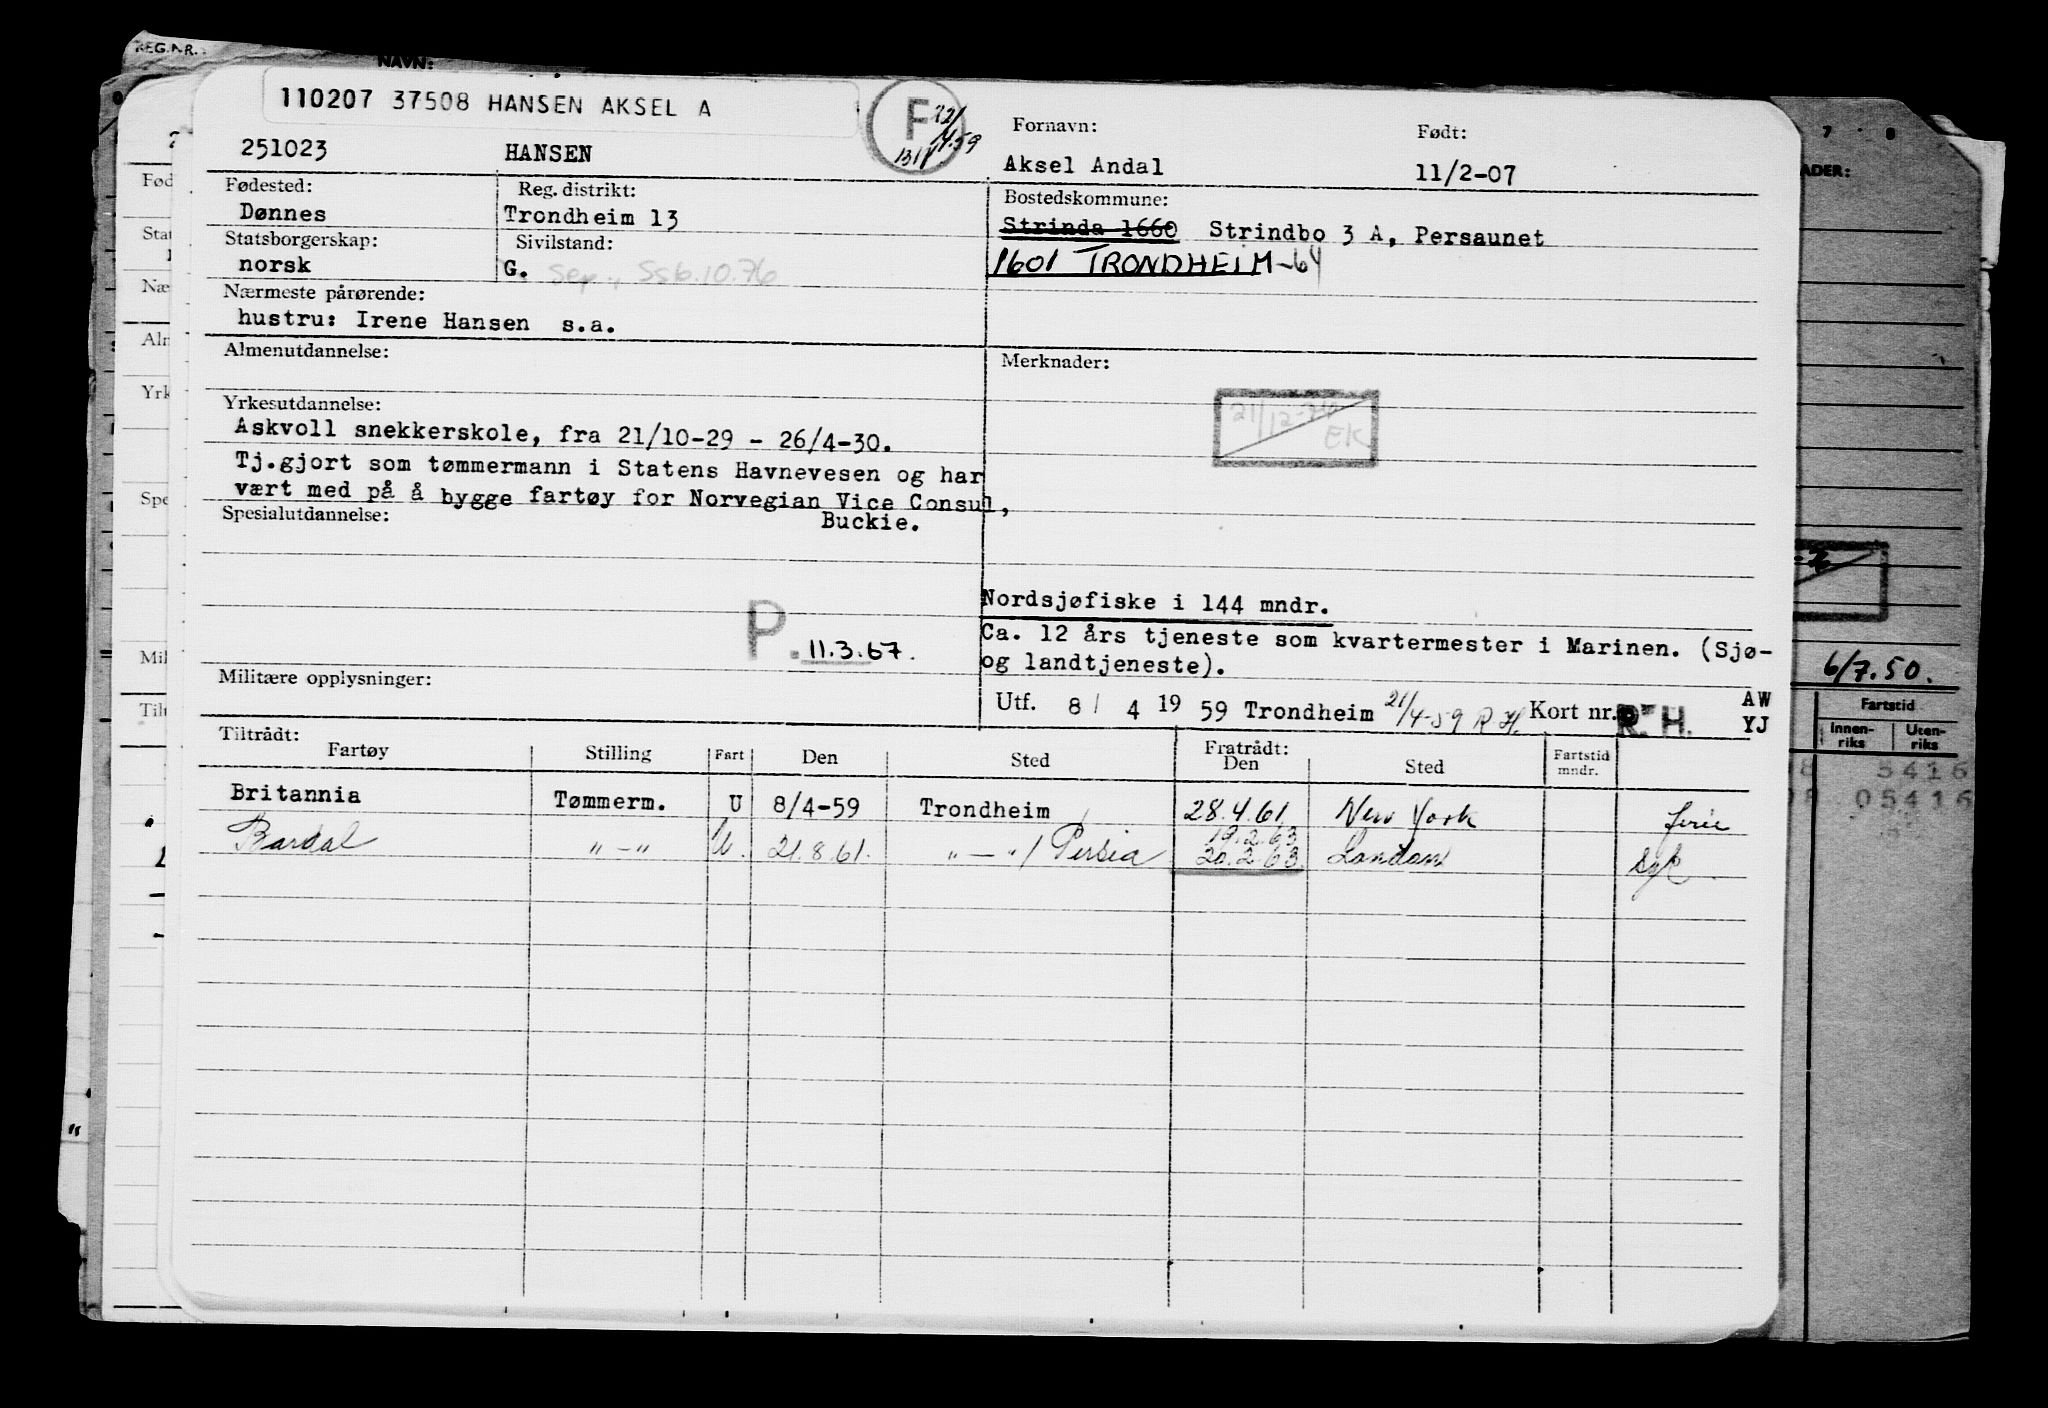 REG.NR.
NAVN:
110207 37508 HANSEN AKSEL A
F 22/4-59
Fornavn: Født:
251023 HANSEN Aksel Andal 11/2-07
Fødested: Reg. distrikt: Bostedskommune:
Dønnes Trondheim 13 Strinda 1660 Strindbo 3 A, Persaunet
Statsborgerskap: Sivilstand: 1601 TRONDHEIM -64
norsk G. Sep., Ssb.10.76
Nærmeste pårørende:
hustru: Irene Hansen s.a.
Almenutdannelse: Merknader:
Yrkesutdannelse:
21/12-74
EK
Askvoll snekkerskole, fra 21/10-29 - 26/4-30.
Tj.gjort som tømmermann i Statens Havnevesen og har
vært med på å bygge fartøy for Norwegian Vice Consul,
Spesialutdannelse: Buckie.
Nordsjøfiske i 144 mndr.
P. 11.3.67.
Ca. 12 års tjeneste som kvartermester i Marinen. (Sjø-
og landtjeneste).
Militære opplysninger:
Utf. 8/ 4 19 59 Trondheim 21/4-59 R.H. Kort nr. R.H. AW
YJ
Tiltrådt: Fratrådt:
Fartøy Stilling Fart Den Sted Den Sted Fartstid mndr.
Britannia Tømmerm. U 8/4-59 Trondheim 28.4.61 New York ferie
19.2.63
Bardal "-" U. 21.8.61. "-"/Persia 20.2.63. London syk
7 8
ADER:
6/7.50.
Fartstid
Innen-riks Uten-riks
5416
05416
Fød
Stat
Næ
Aln
Yrk
Spe
Mil
Tilt